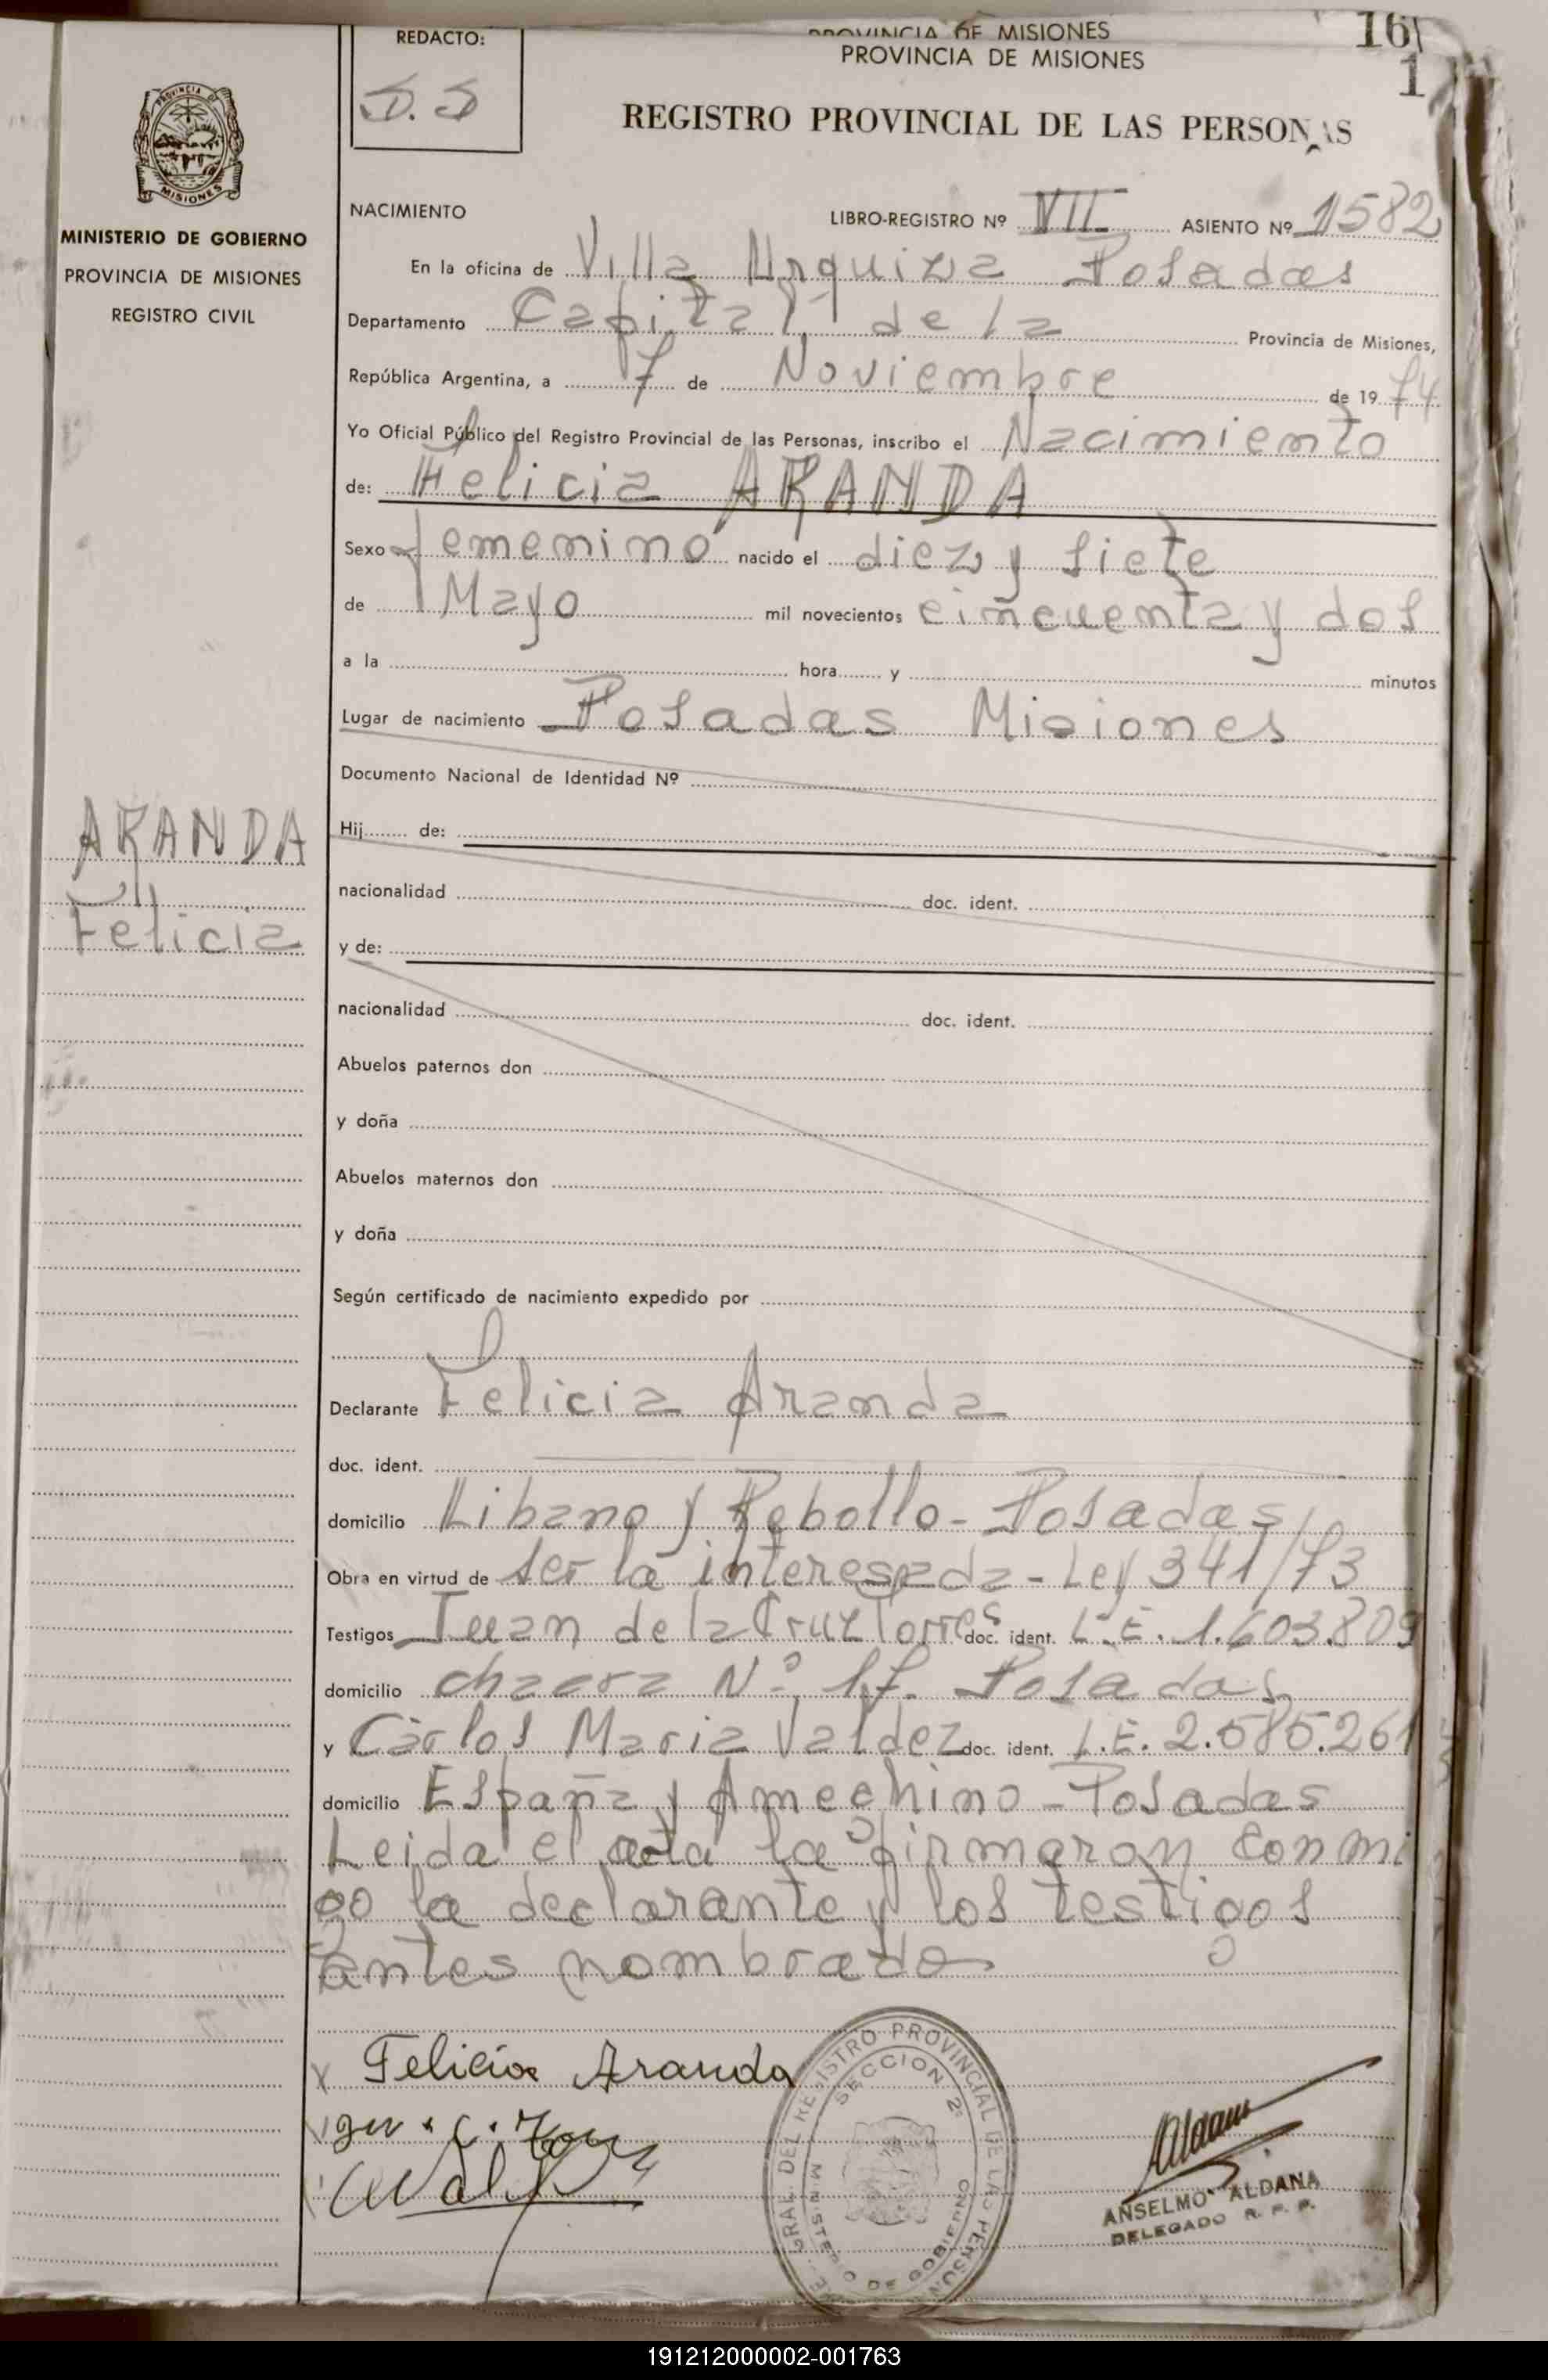 PROVINCIA DE MISIONES
PROVINCIA DE MISIONES
16
1
REDACTO:
REGISTRO PROVINCIAL DE LAS PERSONAS
PROVINCIA DE
MISIONES
MINISTERIO DE GOBIERNO
PROVINCIA DE MISIONES
REGISTRO CIVIL
NACIMIENTO LIBRO-REGISTRO Nº VII ASIENTO Nº 1582
En la oficina de Villa Urquiza Posadas
Departamento Capital de la Provincia de Misiones,
República Argentina, a 7 de Noviembre de 1974
Yo Oficial Público del Registro Provincial de las Personas, inscribo el Nacimiento
de: Felicia ARANDA
Sexo femenino nacido el diez y siete
de Mayo mil novecientos cincuenta y dos
a la hora y minutos
Lugar de nacimiento Posadas Misiones
Documento Nacional de Identidad Nº
Hij de:
nacionalidad doc. ident.
y de:
nacionalidad doc. ident.
Abuelos paternos don
y doña
Abuelos maternos don
y doña
Según certificado de nacimiento expedido por
ARANDA
Felicia
Declarante Felicia Aranda
doc. ident.
domicilio Libano y Rebollo - Posadas
Obra en virtud de ser la interesada - Ley 341/73
Testigos Juan de la Cruz Torres doc. ident. L.E. 1.603.809
domicilio chacra Nº 17. Posadas
y Carlos Maria Valdez doc. ident. L.E. 2.585.261
domicilio España y Ameghino - Posadas
Leida el acta la firmaron conmi
go la declarante y los testigos
antes nombrado
x Felicia Aranda
GRAL. DEL REGISTRO PROVINCIAL DE LAS PERSON
SECCION 2ª
MINISTERIO DE GOBIERNO
Aldana
ANSELMO ALDANA
DELEGADO R. P. P.
191212000002-001763